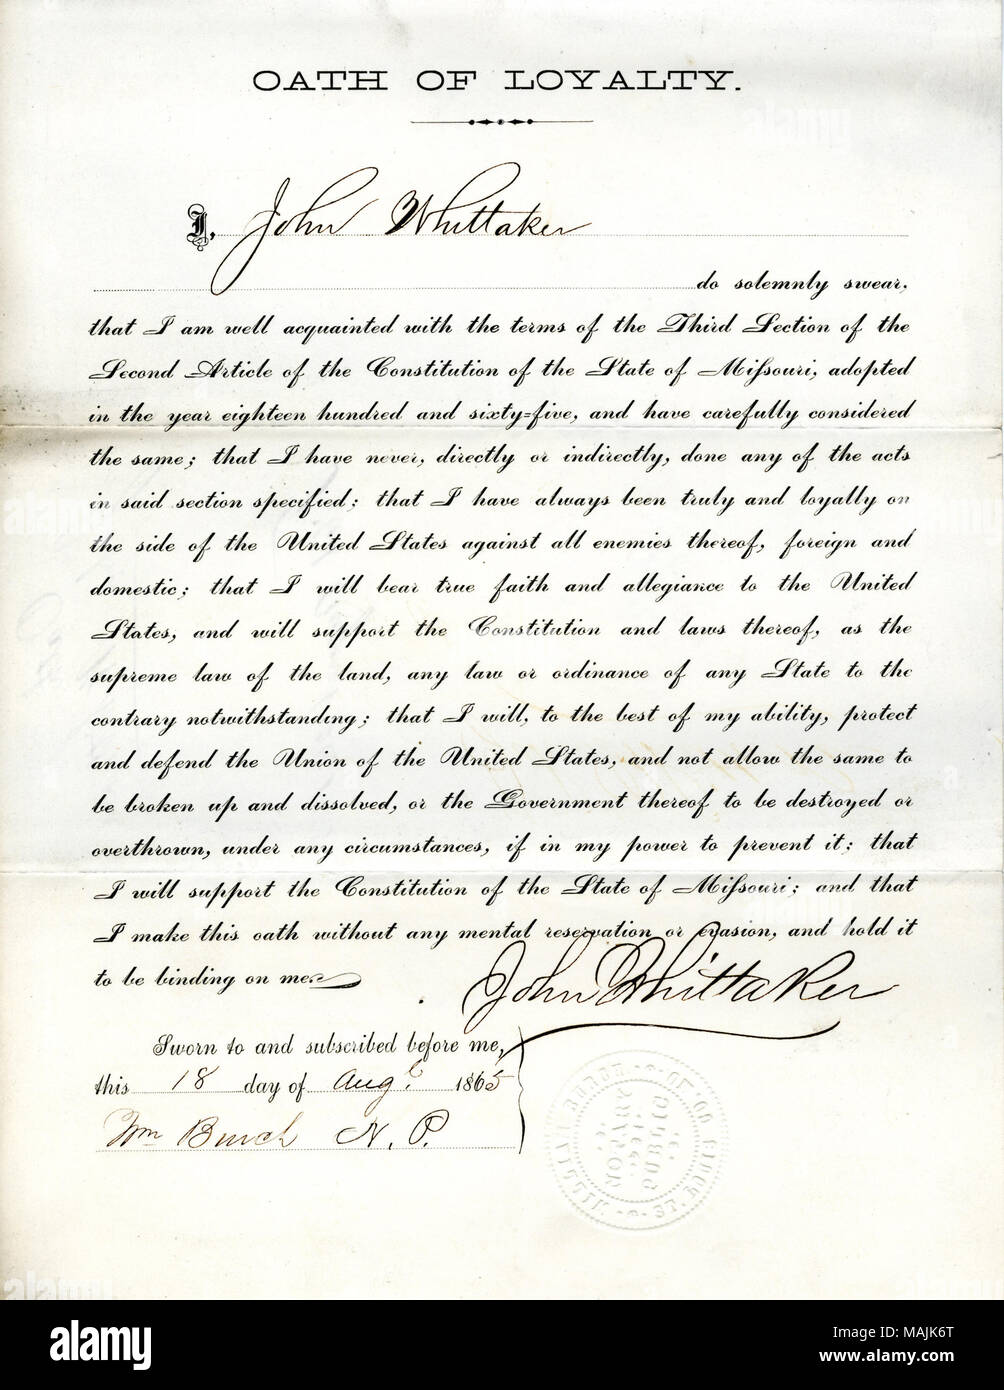 OATH OF LOYALTY.
I, John Whittaker
do solemnly swear,
that I am well acquainted with the terms of the Third Section of the
Second Article of the Constitution of the State of Mißouri, adopted
in the year eighteen hundred and sixty=five, and have carefully considered
the same; that I have never, directly or indirectly, done any of the acts
in said section specified: that I have always been truly and loyally on
the side of the United States against all enemies thereof, foreign and
domestic; that I will bear true faith and allegiance to the United
States, and will support the Constitution and laws thereof, as the
supreme law of the land, any law or ordinance of any State to the
contrary notwithstanding; that I will, to the best of my ability, protect
and defend the Union of the United States, and not allow the same to
be broken up and dissolved, or the Government thereof to be destroyed or
overthrown, under any circumstances, if in my power to prevent it; that
I will support the Constitution of the State of Mißouri; and that
I make this oath without any mental reservation or evasion, and hold it
to be binding on me.
John Whittaker
Sworn to and subscribed before me,
this 18 day of Augt 1865
Wm Burch N. P.
WILLIAM BURCH
NOTARY
PUBLIC
ST. LOUIS CO. MO.
alamy
Image ID: MAJK6T
www.alamy.com